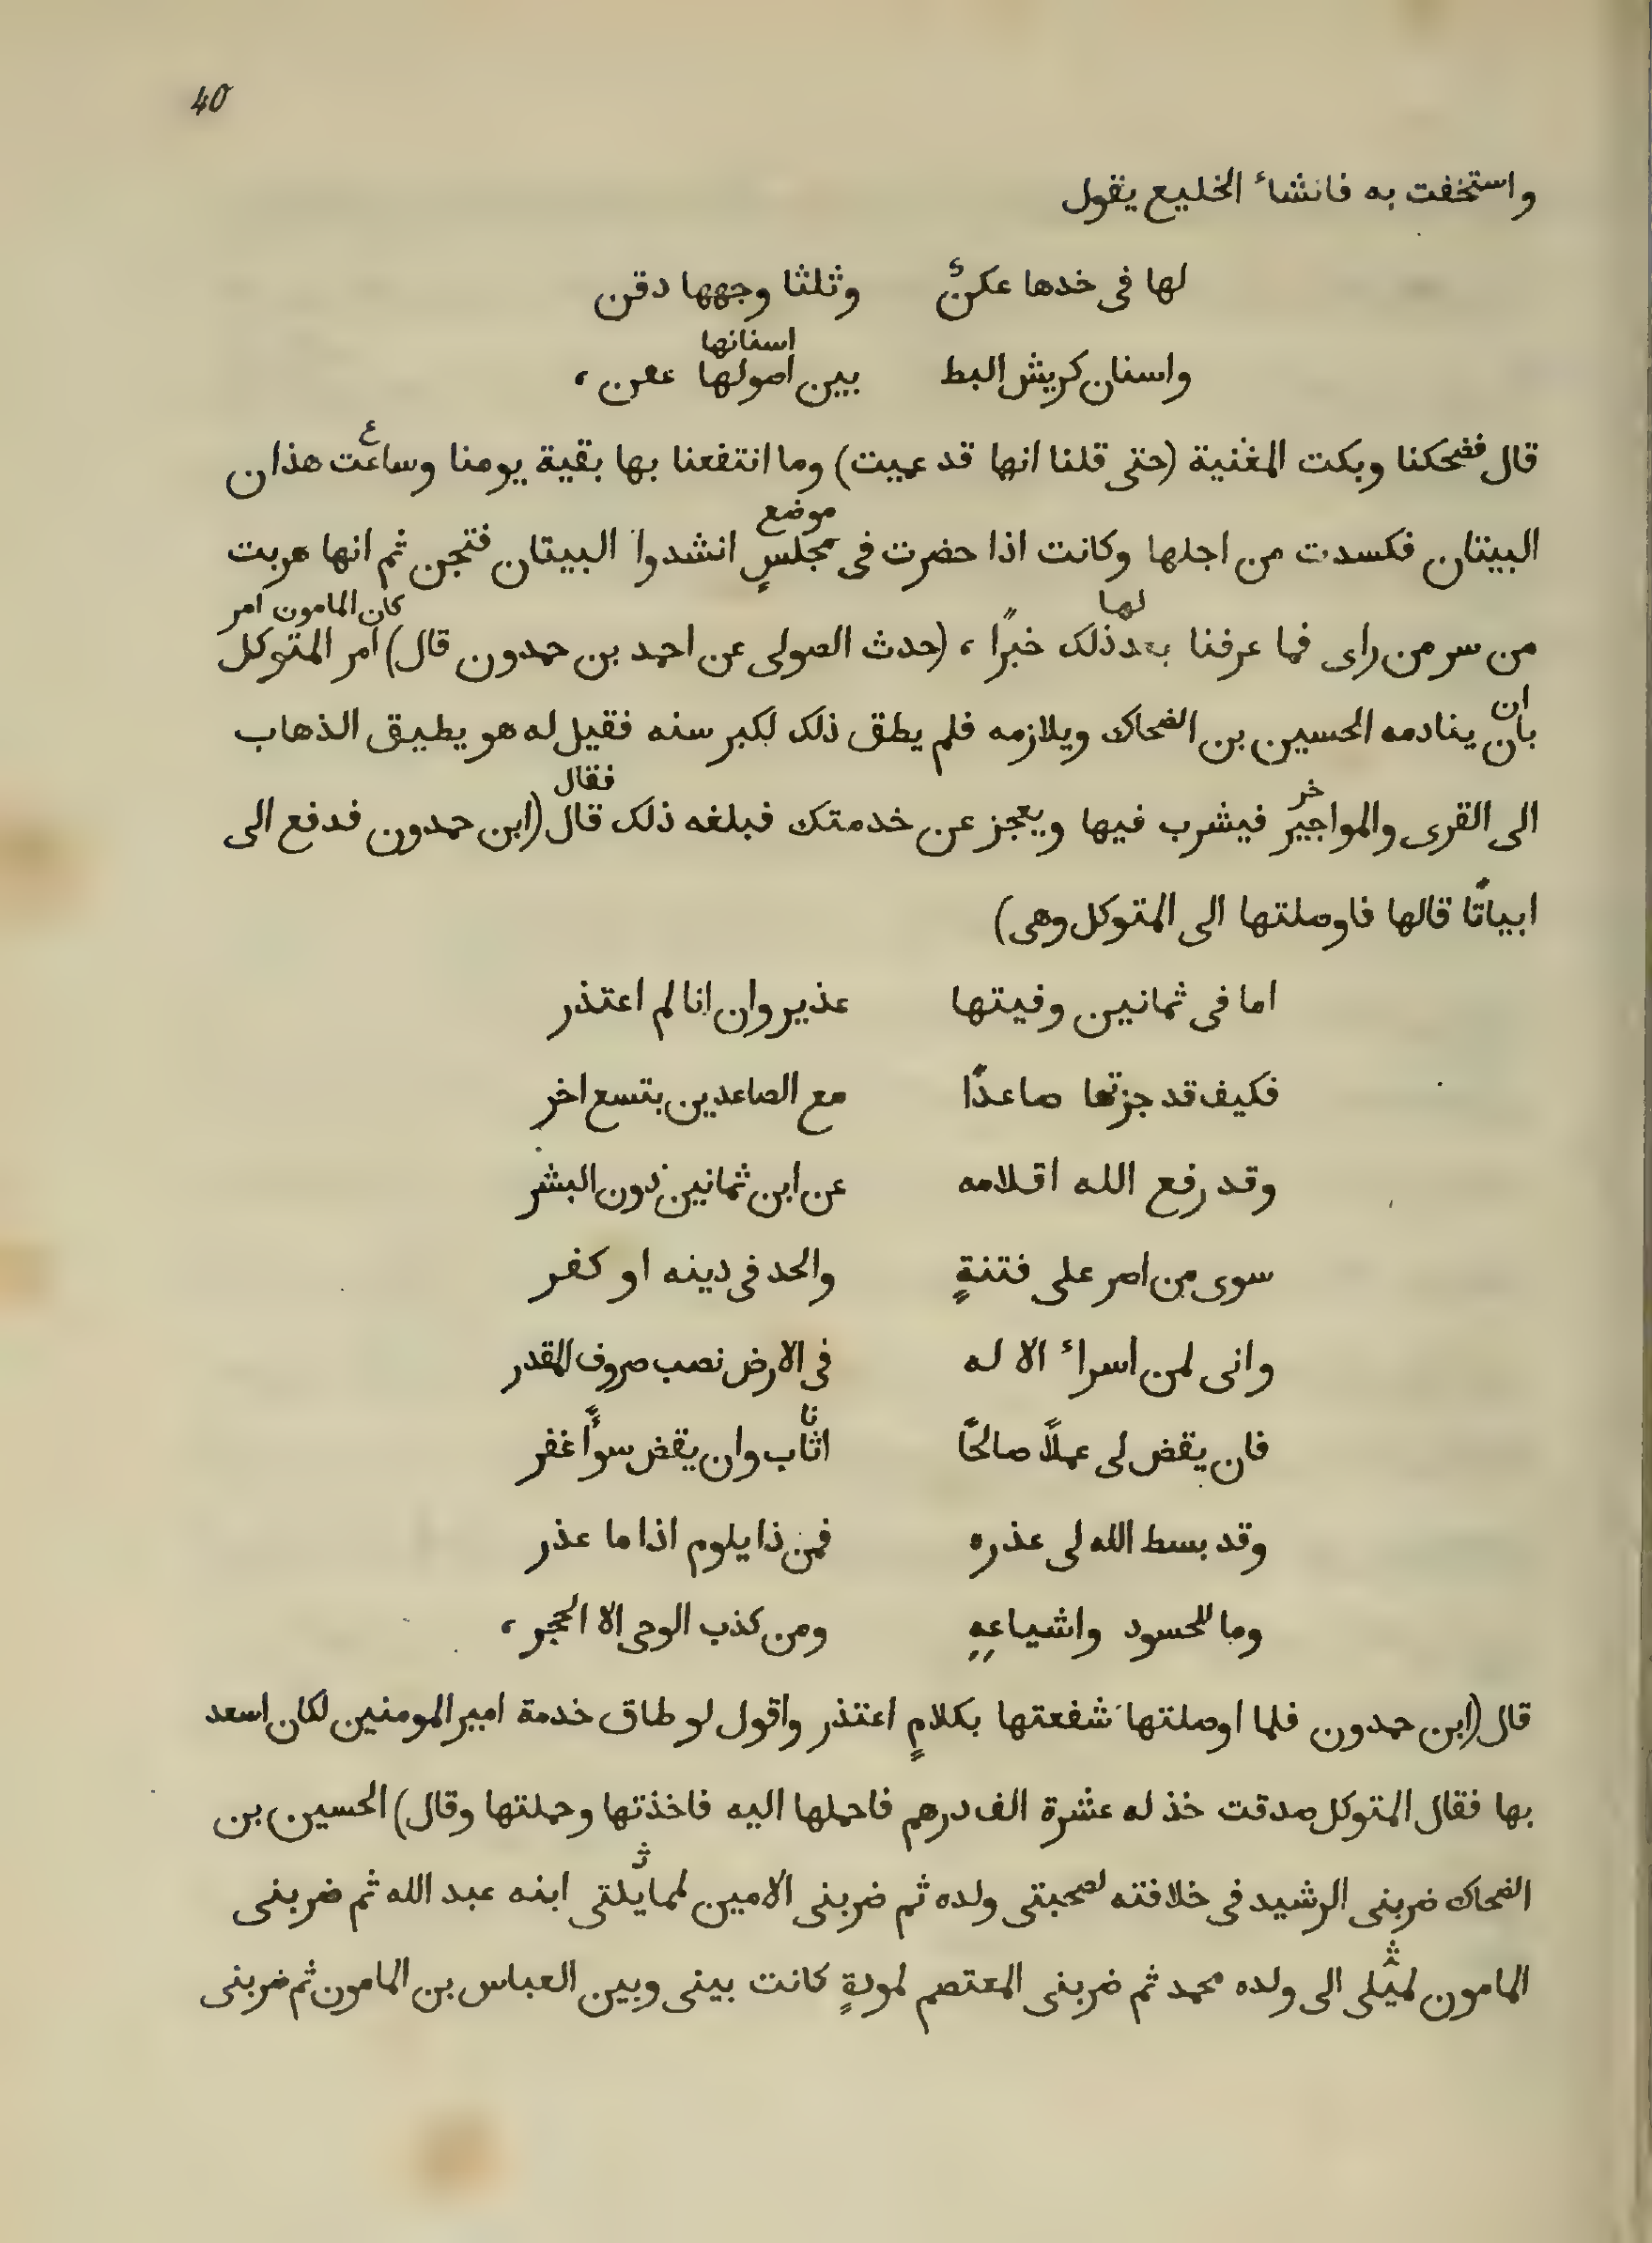 40
واستخفت به فانشاء الخليع يقول
لها فى خدها عكنٌ وثلثا وجهها دقن
اسنانها
واسنان كريش البط بين اصولها عفن ،
ع
قال فضحكنا وبكت المغنية (حتى قلنا انها قد عميت) وما انتفعنا بها بقية يومنا وساعت هذان
موضع
البيتان فكسدت من اجلها وكانت اذا حضرت فى مجلسٍ انشدوا البيتان فتجن ثم انها هربت
لها كان المامون امر
من سر من راى فما عرفنا بعد ذلك خبرًا ، (حدث الصولى عن احمد بن حمدون قال) امر المتوكل
ان
بان ينادمه الحسين بن الضحاك ويلازمه فلم يطق ذلك لكبر سنه فقيل له هو يطيق الذهاب
خر فقال
الى القرى والمواجير فيشرب فيها ويعجز عن خدمتك فبلغه ذلك قال (ابن حمدون فدفع الى
ابياتًا قالها فاوصلتها الى المتوكل وهى)
اما فى ثمانين وفيتها عذير وان انا لم اعتذر
فكيف قد جزتها صاعدًا مع الصاعدين بتسع اخر
وقد رفع الله اقلامه عن ابن ثمانين دون البشر
سوى من اصر على فتنةٍ والحد فى دينه او كفر
وانى لمن اسراء الاله فى الارض نصب صروف المقدر
نا
فان يقض لى عملًا صالحًا اثاب وان يقض سوأً غفر
وقد بسط الله لى عذره فمن ذا يلوم اذا ما عذر
وما للحسود واشياعهِ ومن كذب الوحى الا الحجر ،
قال (ابن حمدون فلما اوصلتها شفعتها بكلامٍ اعتذر واقول لو طاق خدمة امير المومنين لكان اسعد
بها فقال المتوكل صدقت خذ له عشرة الف درهم فاحملها اليه فاخذتها وحملتها وقال) الحسين بن
ث
الضحاك ضربنى الرشيد فى خلافته لصحبتى ولده ثم ضربنى الامين لممايلتى ابنه عبد الله ثم ضربنى
ث
المامون لميلى الى ولده محمد ثم ضربنى المعتصم لمودةٍ كانت بينى وبين العباس بن المامون ثم ضربنى